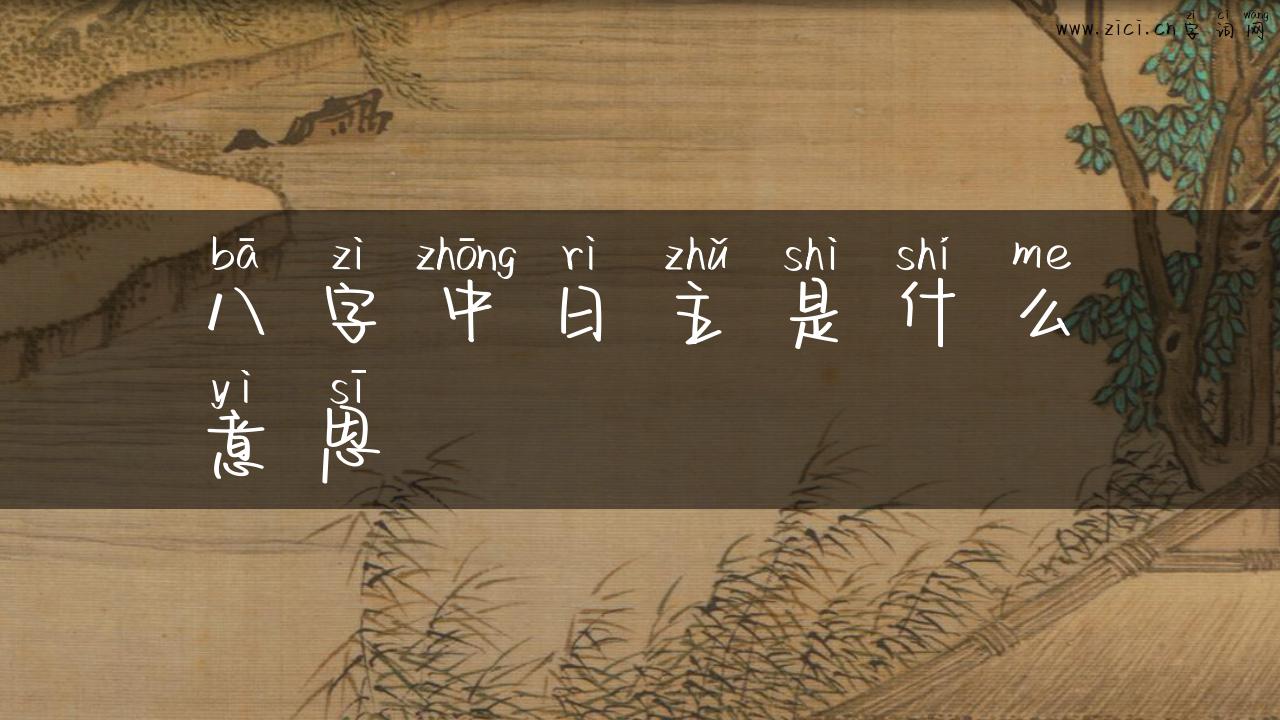 zì cí wǎng
www.zici.cn 字词网
bā zì zhōng rì zhǔ shì shí me
八字中日主是什么
yì sī
意思